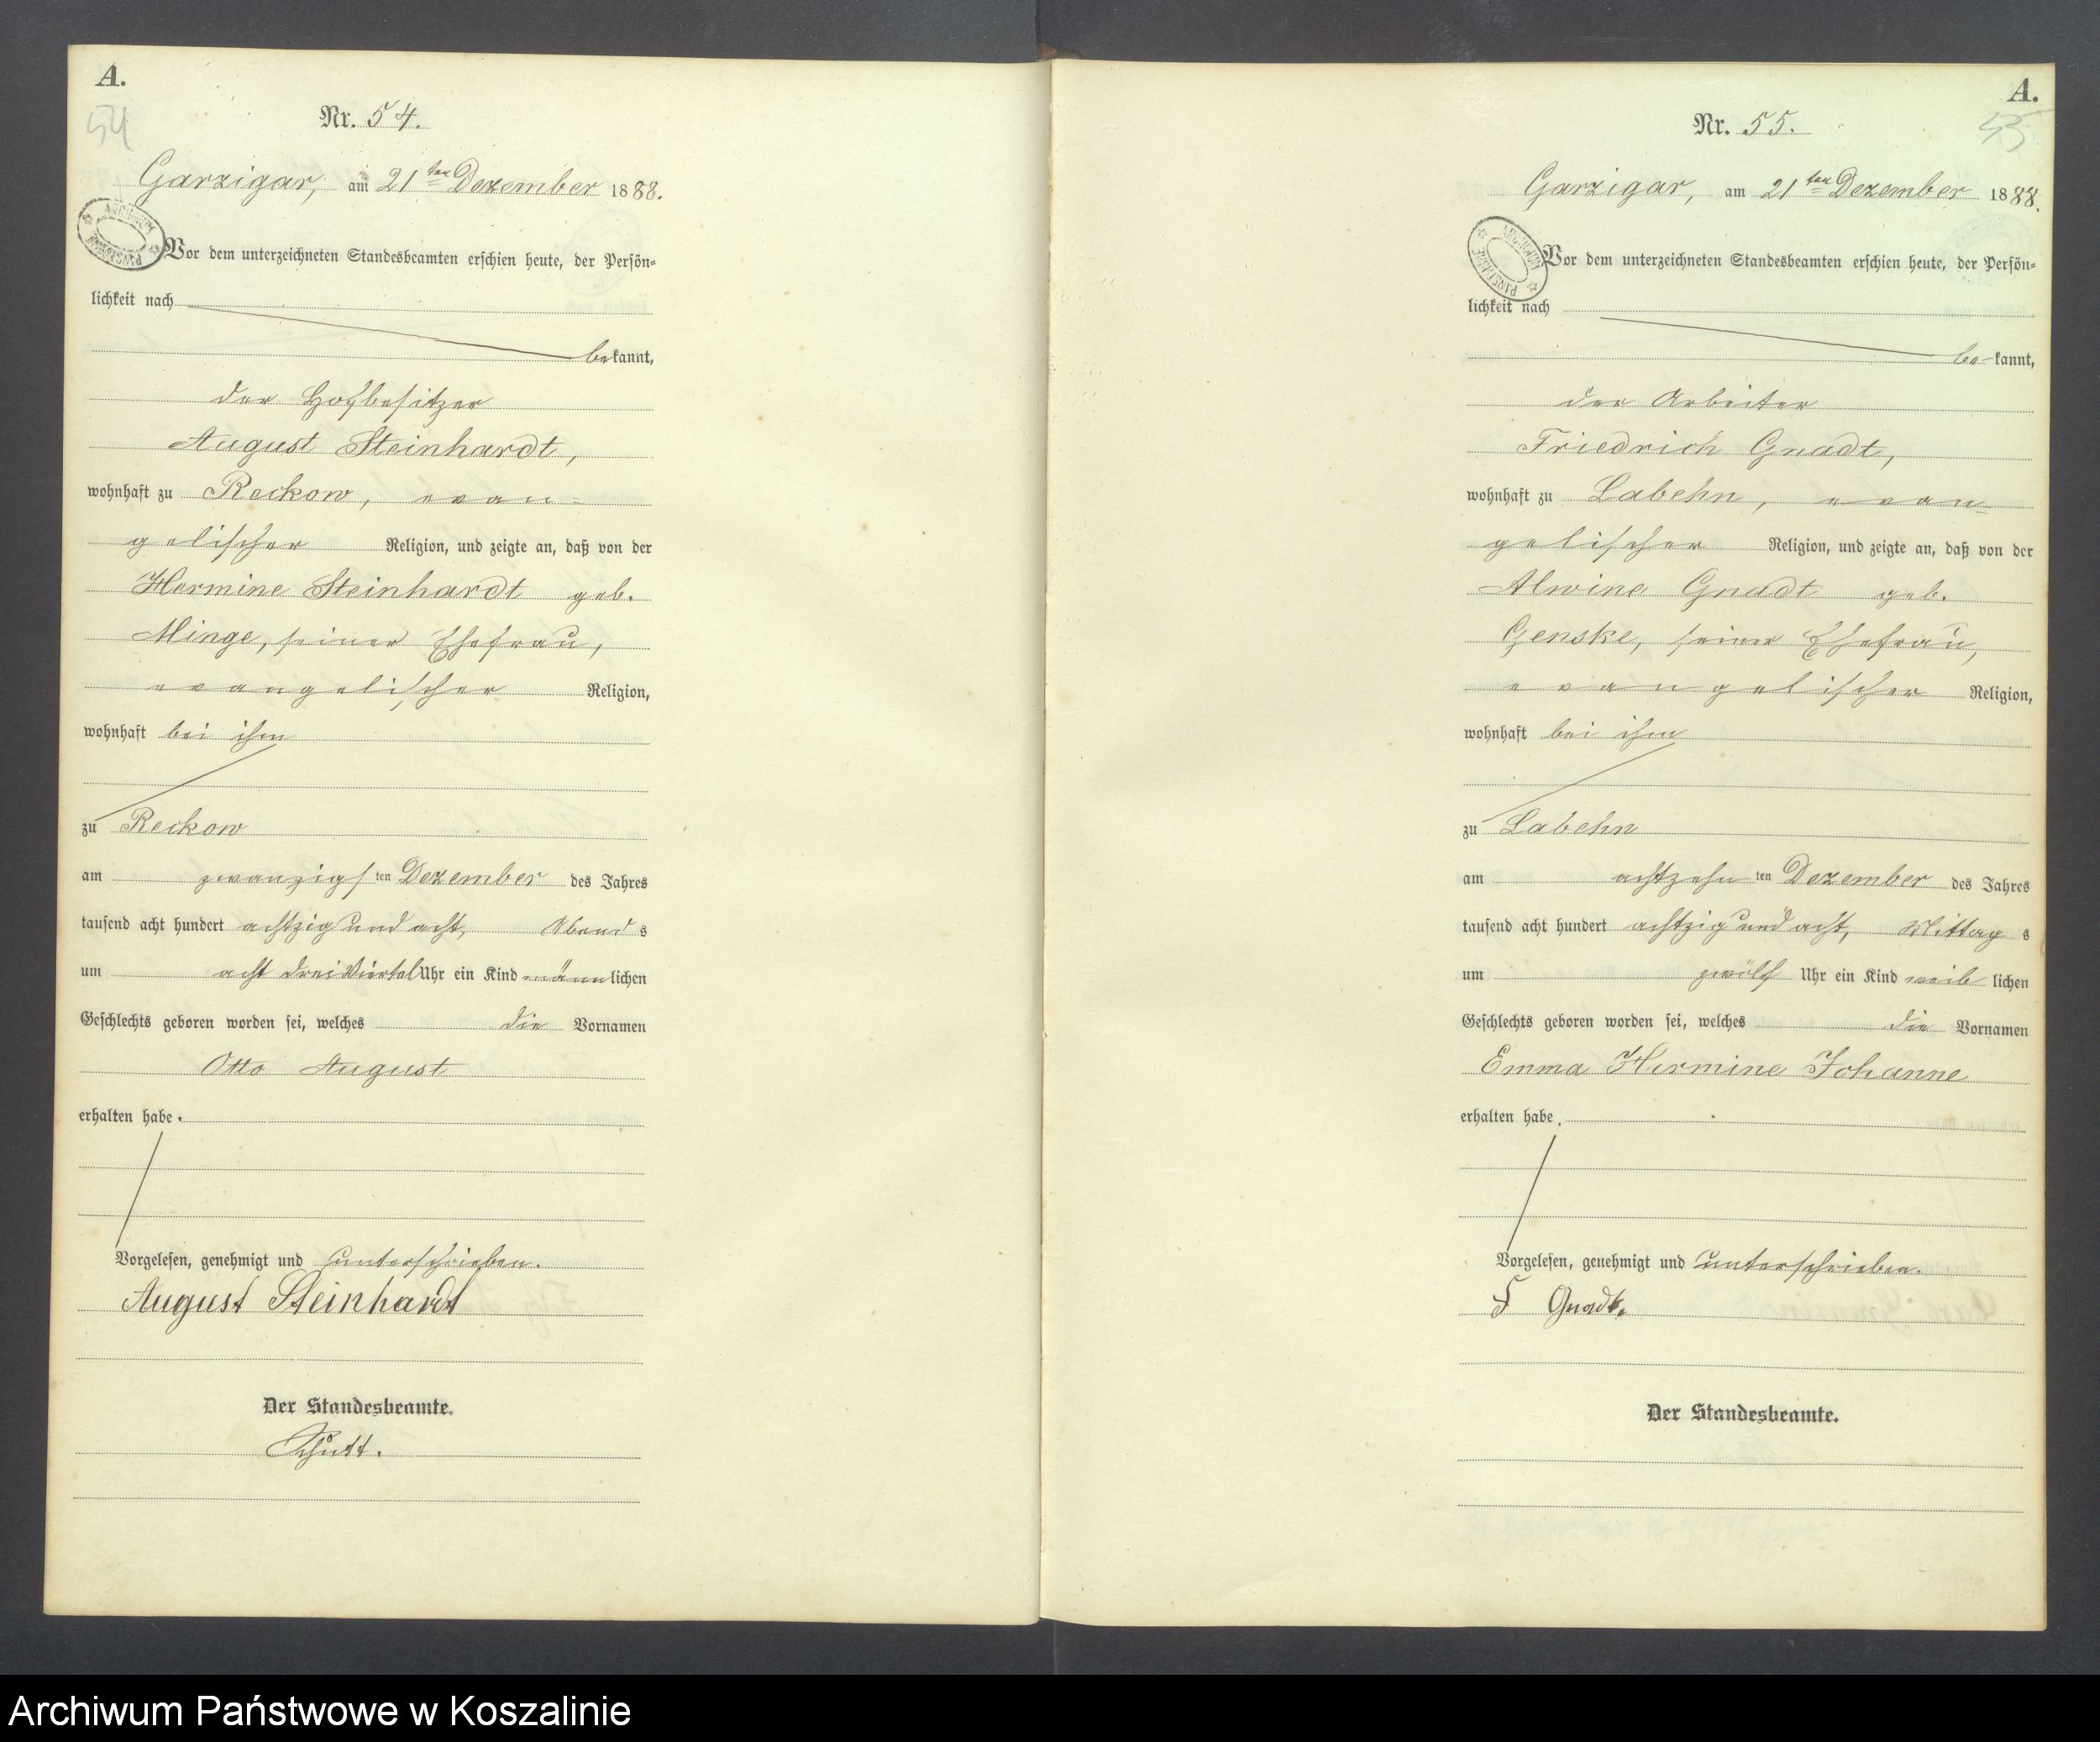 A.
54
Nr. 54.
Garzigar, am 21ten Dezember 1888.
Vor dem unterzeichneten Standesbeamten erschien heute, der Persön=
lichkeit nach
bekannt,
der Hofbesitzer
August Steinhardt,
wohnhaft zu Reckow, evan=
gelischer Religion, und zeigte an, daß von der
Hermine Steinhardt geb.
Minge, seiner Ehefrau,
evangelischer Religion,
wohnhaft bei ihm
zu Reckow
am zwanzigsten Dezember des Jahres
tausend acht hundert achtzig und acht, Abends
um acht dreiviertel Uhr ein Kind männlichen
Geschlechts geboren worden sei, welches die Vornamen
Otto August
erhalten habe.
Vorgelesen, genehmigt und unterschrieben.
August Steinhardt
Der Standesbeamte.
A.
55
Nr. 55.
Garzigar, am 21ten Dezember 1888.
Vor dem unterzeichneten Standesbeamten erschien heute, der Persön=
lichkeit nach
be-kannt,
der Arbeiter
Friedrich Gnadt,
wohnhaft zu Labehn, evan=
gelischer Religion, und zeigte an, daß von der
Alwine Gnadt geb.
Genske, seiner Ehefrau,
evangelischer Religion,
wohnhaft bei ihm
zu Labehn
am achtzehnten Dezember des Jahres
tausend acht hundert achtzig und acht, Mittags
um zwölf Uhr ein Kind weiblichen
Geschlechts geboren worden sei, welches die Vornamen
Emma Hermine Johanne
erhalten habe.
Vorgelesen, genehmigt und unterschrieben.
F Gnadt.
Der Standesbeamte.
Archiwum Państwowe w Koszalinie